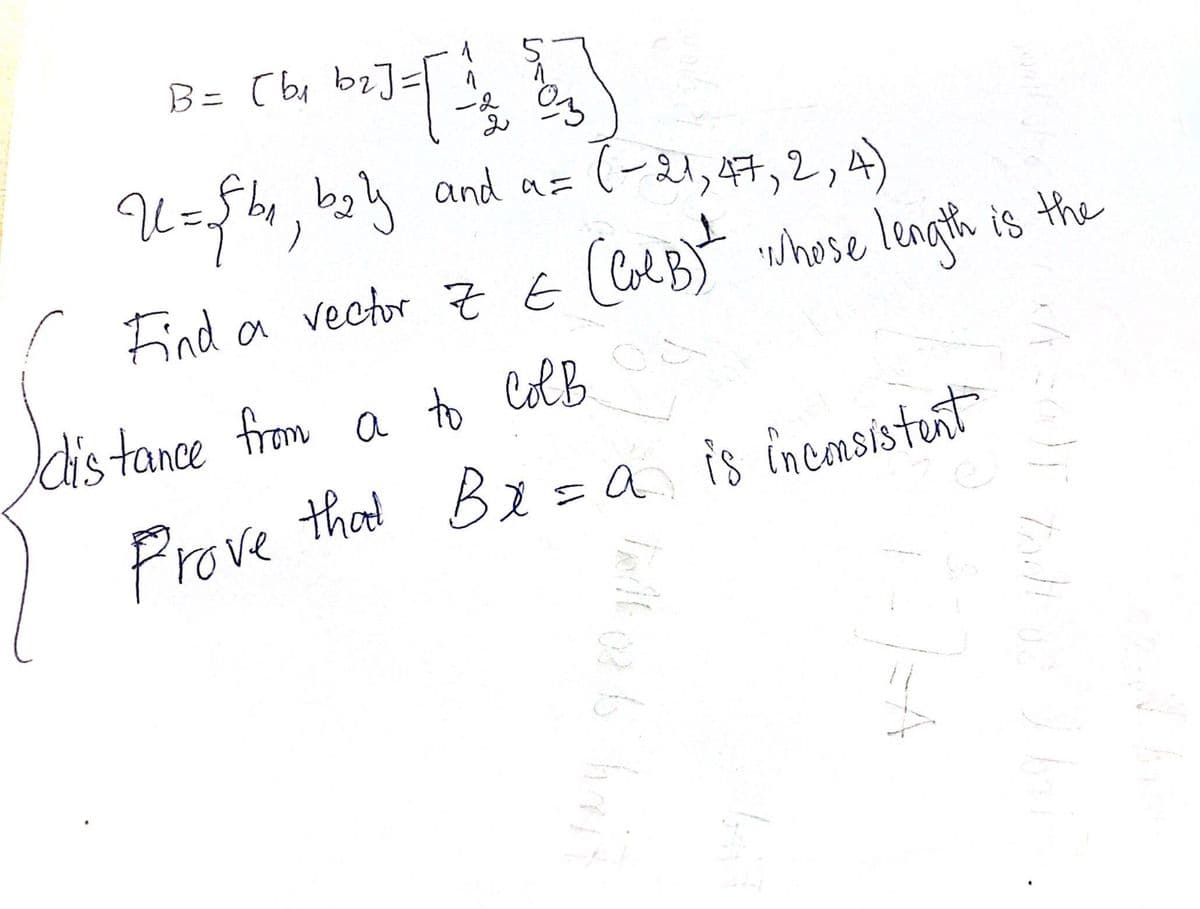 B = [b1 b2] = [1 5
1 1
-2 0
2 -3]
U = {b1, b2} and a = (-21, 47, 2, 4)
Find a vector z ∈ (Col B)⊥ whose length is the
distance from a to Col B
Prove that Bx = a is inconsistent